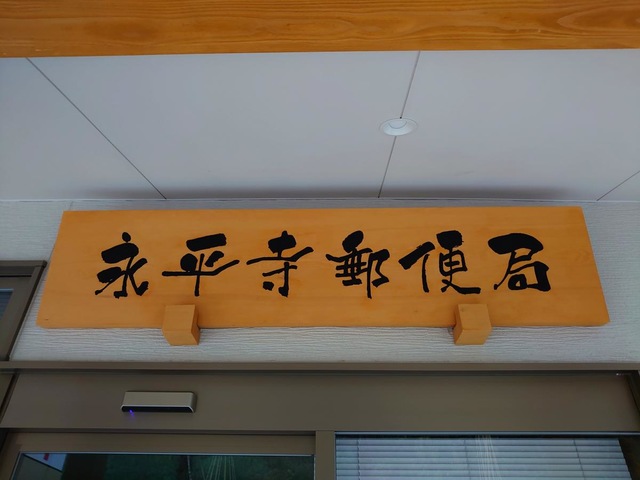 永平寺郵便局